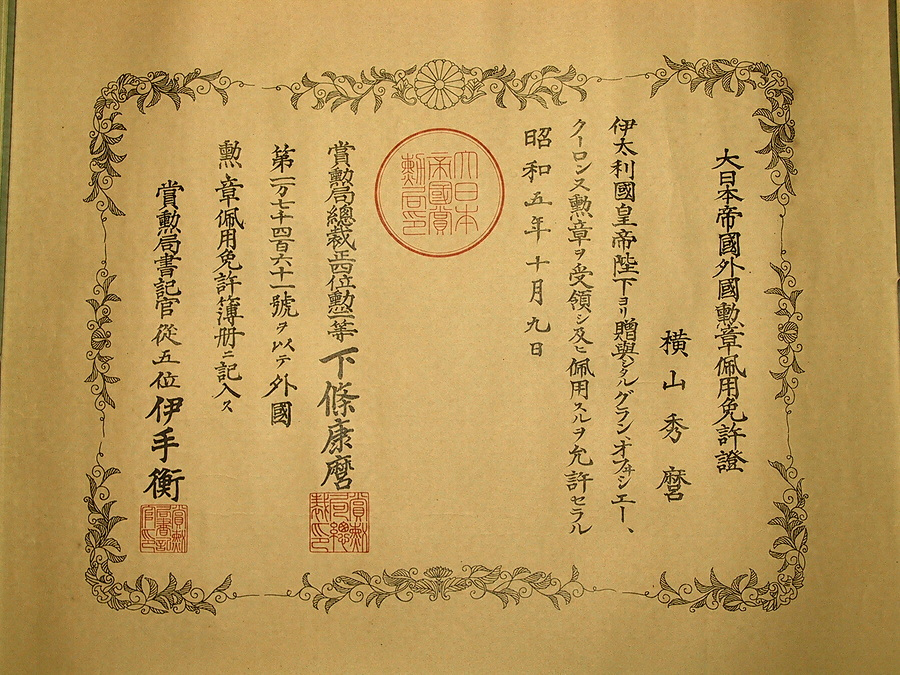 大日本帝國外國勳章佩用免許證
横山秀麿
伊太利國皇帝陛下ヨリ贈與シタルグラン、オフヰシエー、
クーロンヌ勲章ヲ受領シ及ヒ佩用スルヲ允許セラル
昭和五年十月九日
大日本
帝國賞
勳局印
賞勳局總裁正四位勲一等下條康麿
賞勳
局總
裁印
第二万七千四百六十一號ヲ以テ外國
勲章佩用免許簿册ニ記入ス
賞勲局書記官從五位伊手衡
賞勳
局書記
官印